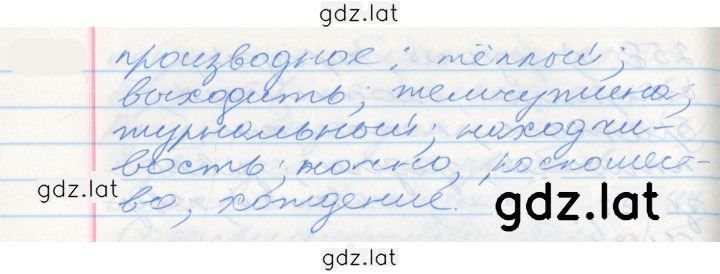 gdz.lat
производное; тёплый;
выходить; жемчужина,
журнальный; находчи-
вость; можно, роскошест-
gdz.lat
во, хождение.
gdz.lat
gdz.lat